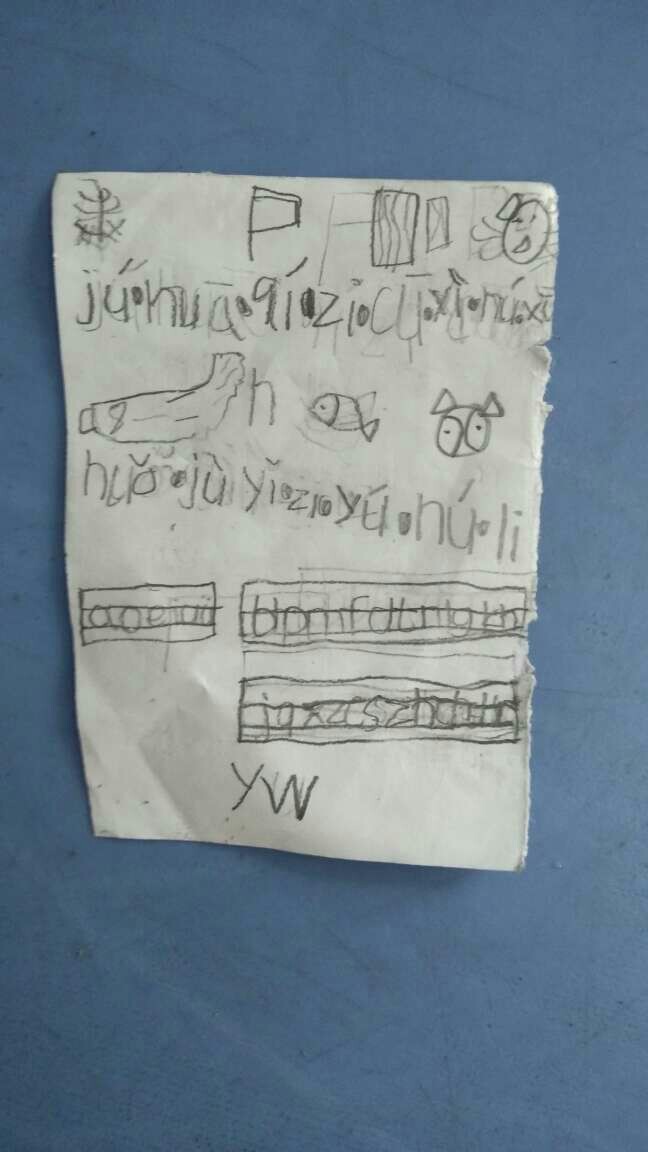 jú·huā·qí·zi·cū·xì·hú·xū
huǒ·jù yǐ·zi·yú·hú·li
aoeiuü
bpmfdtnlgkh
jqxzcszhchshr
yw